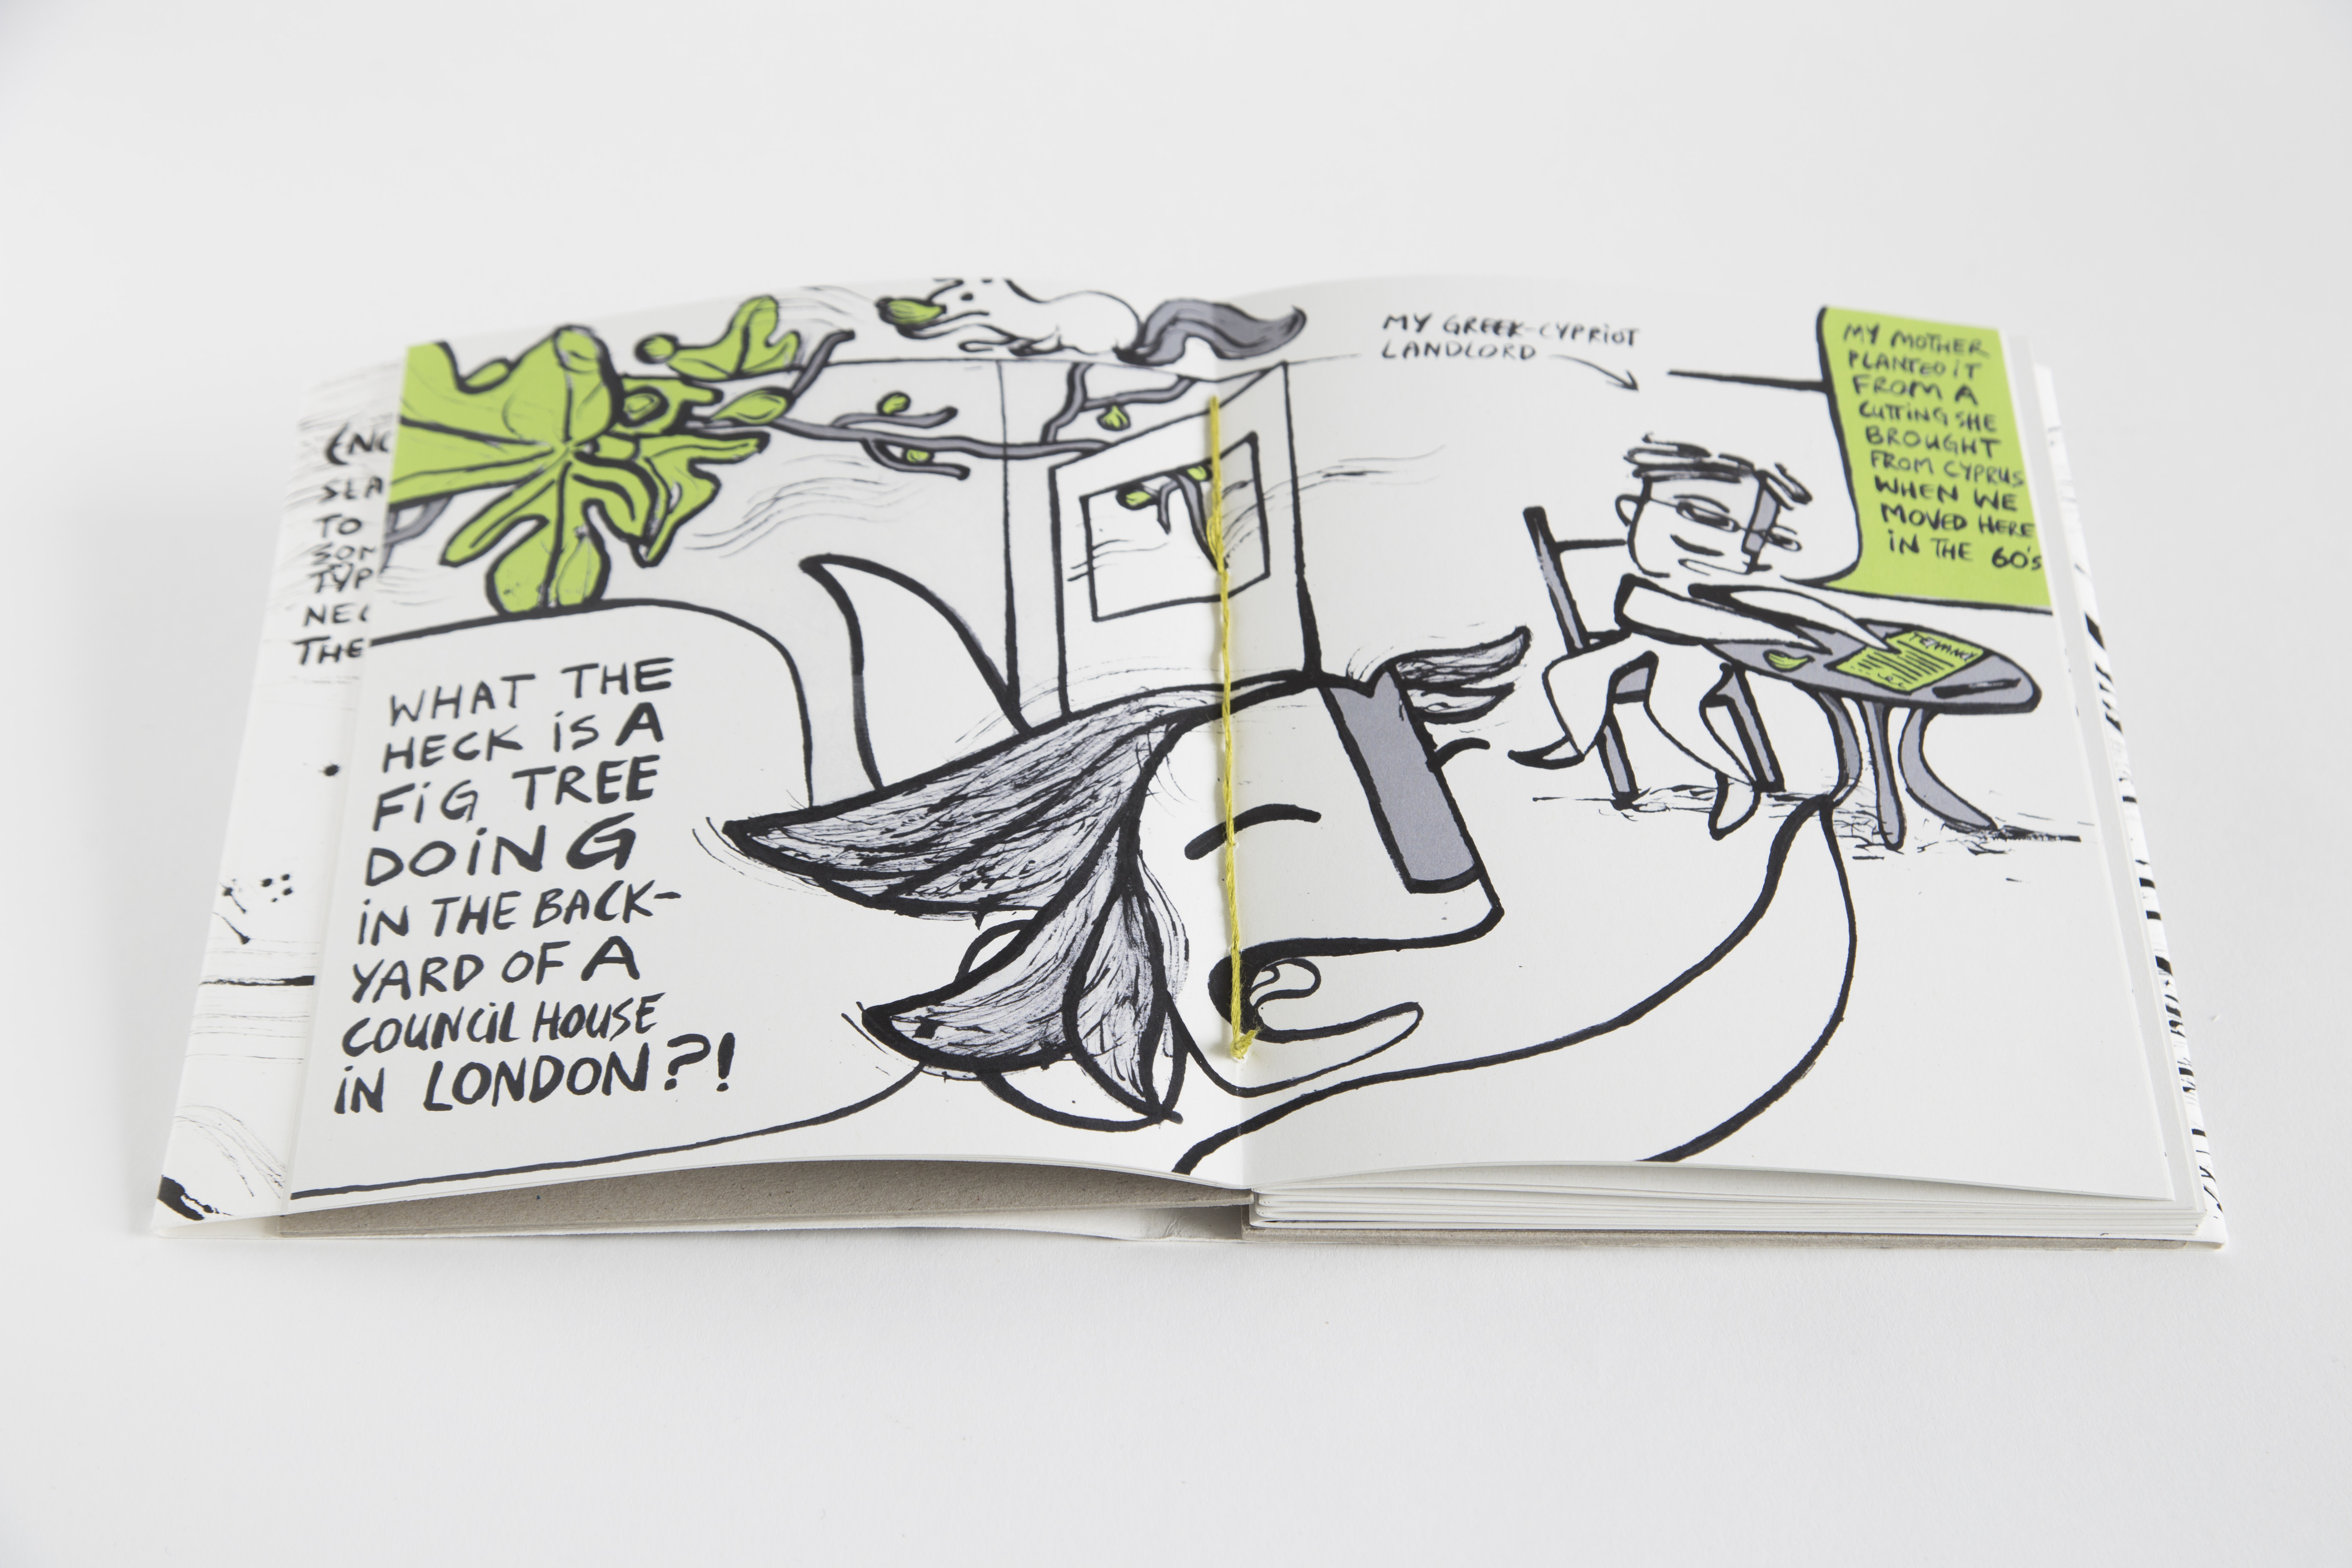 TO
THE
WHAT THE
HECK iS A
FiG TREE
DOiNG
iN THE BACK-
YARD OF A
COUNCiL HOUSE
iN LONDON?!
MY GREEK-CYPRiOT
LANDLORD
MY MOTHER
PLANTED iT
FROM A
CUTTiNG SHE
BROUGHT
FROM CYPRUS
WHEN WE
MOVED HERE
iN THE 60's
TENANCY